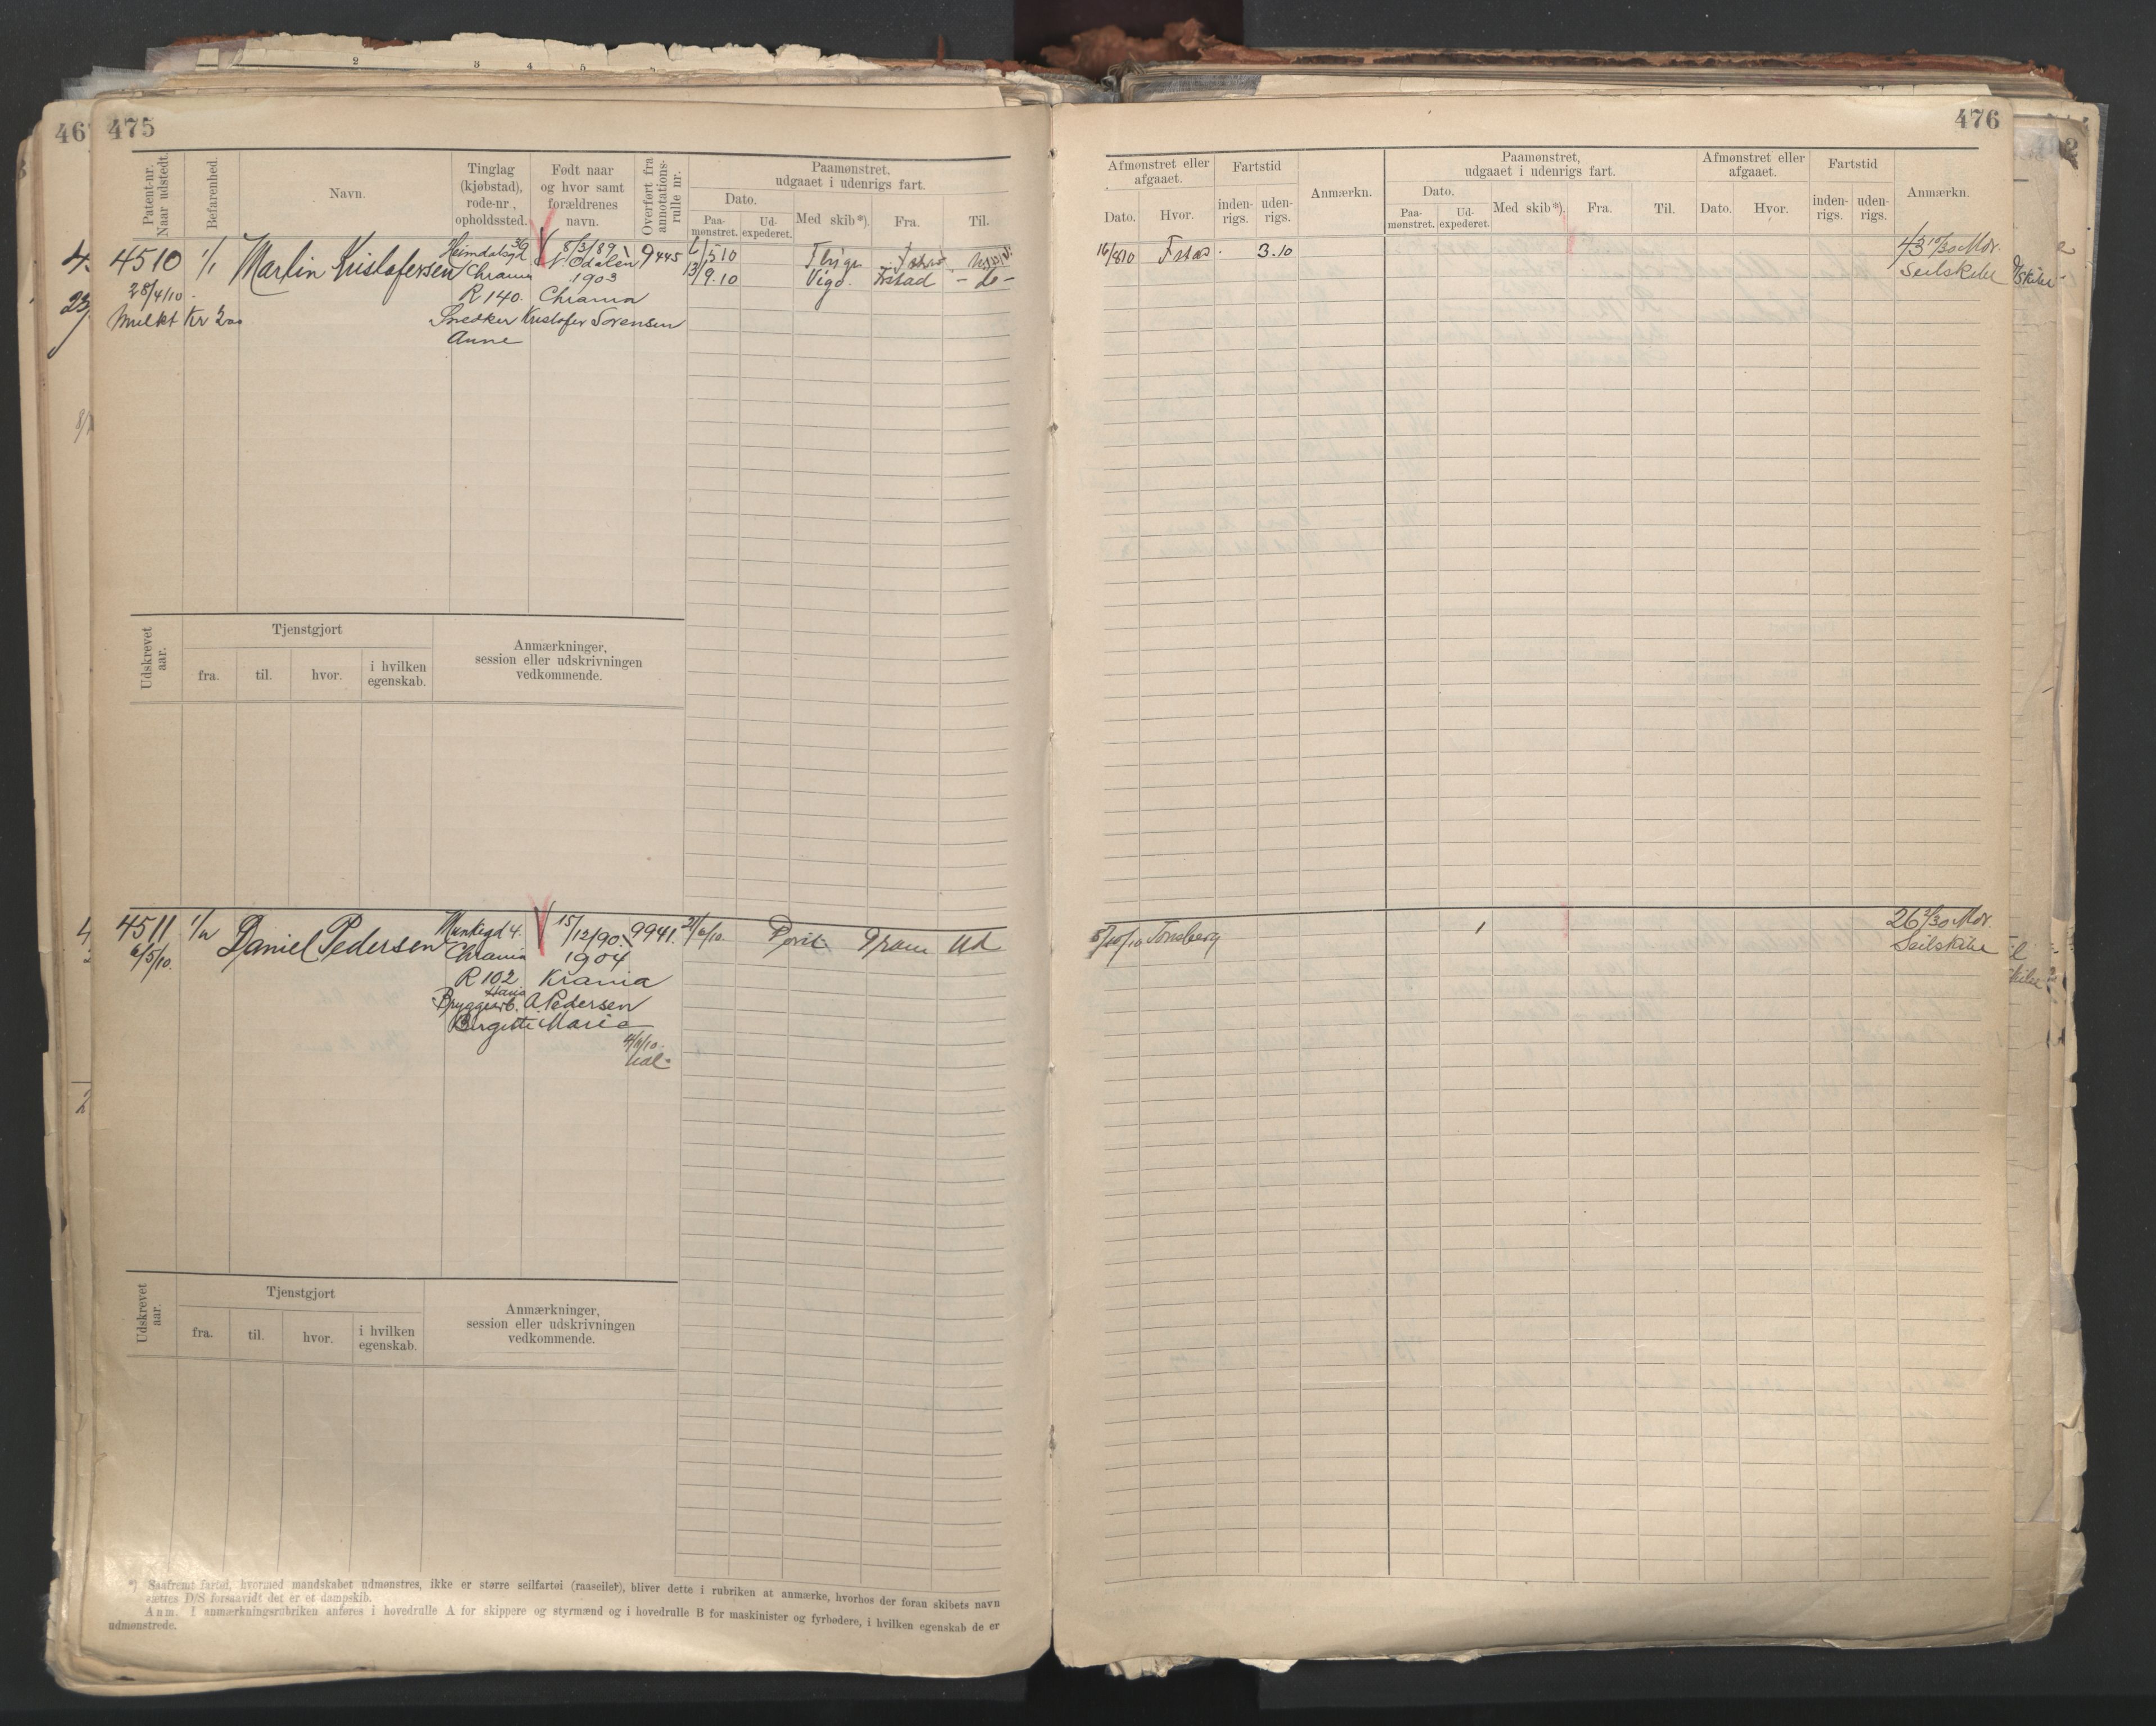 475
Patent-nr. Naar udstedt.
Befarenhed.
Navn.
Tinglag (kjøbstad), rode-nr., opholdssted.
Født naar og hvor samt forældrenes navn.
Overført fra annotations-rulle nr.
Paamønstret, udgaaet i udenrigs fart.
Dato.
Paa-mønstret.
Ud-expederet.
Med skib*).
Fra.
Til.
4510 1/1 Martin Kristofersen Heimdalsgd 8/3/89 9445
28/4/10 Chrania N Odalen
1903
R 140. Chrania
Mulkt Kr 2oo Snedker Kristofer Sørensen
Anne
13/9.10 Vigo. Fstad - do -
Udskrevet aar.
Tjenstgjort
fra.
til.
hvor.
i hvilken egenskab.
Anmærkninger, session eller udskrivningen vedkommende.
4511 Daniel Pedersen Munkegd 4. 15/12/90. 9941. Ud
6/5/10. Chrania 1904
R 102 Krania
Hans
Bryggearb. A. Pedersen
Birgitte Marie
Udskrevet aar.
Tjenstgjort
fra.
til.
hvor.
i hvilken egenskab.
Anmærkninger, session eller udskrivningen vedkommende.
*) Saafremt fartøi, hvormed mandskabet udmønstres, ikke er større seilfartøi (raaseiler), bliver dette i rubriken at anmærke, hvorhos der foran skibets navn
sættes D/S forsaavidt det er et dampskib.
Anm. I anmærkningsrubriken anføres i hovedrulle A for skippere og styrmænd og i hovedrulle B for maskinister og fyrbødere, i hvilken egenskab de er
udmønstrede.
476
Afmønstret eller afgaaet.
Dato.
Hvor.
Fartstid
inden-rigs.
uden-rigs.
Anmærkn.
Paamønstret, udgaaet i udenrigs fart.
Dato.
Paa-mønstret.
Ud-expederet.
Med skib*).
Fra.
Til.
Afmønstret eller afgaaet.
Dato.
Hvor.
Fartstid
inden-rigs.
uden-rigs.
Anmærkn.
16/8 10 Fstad. 3.10
Seilskibe
8/10/10 Tønsberg
Seilskibe